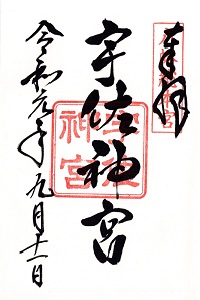 奉拝
宇佐神宮
宇佐神宮
令和元年九月十一日